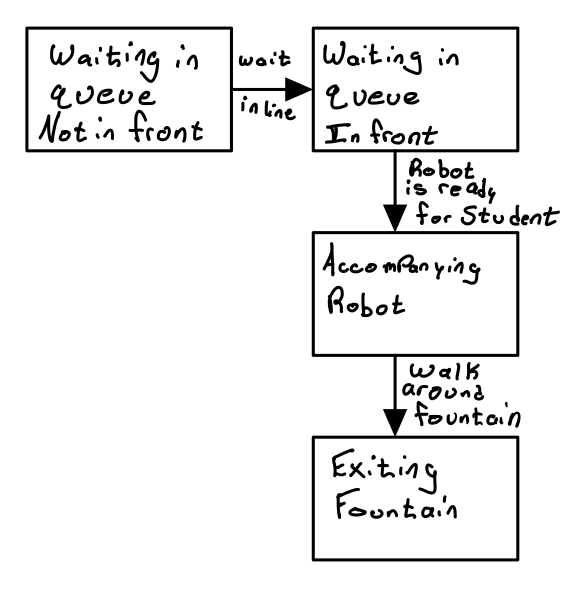 Waiting in
queue
Not in front
wait
in line
Waiting in
queue
In front
Robot
is ready
for Student
Accompanying
Robot
Walk
around
fountain
Exiting
Fountain